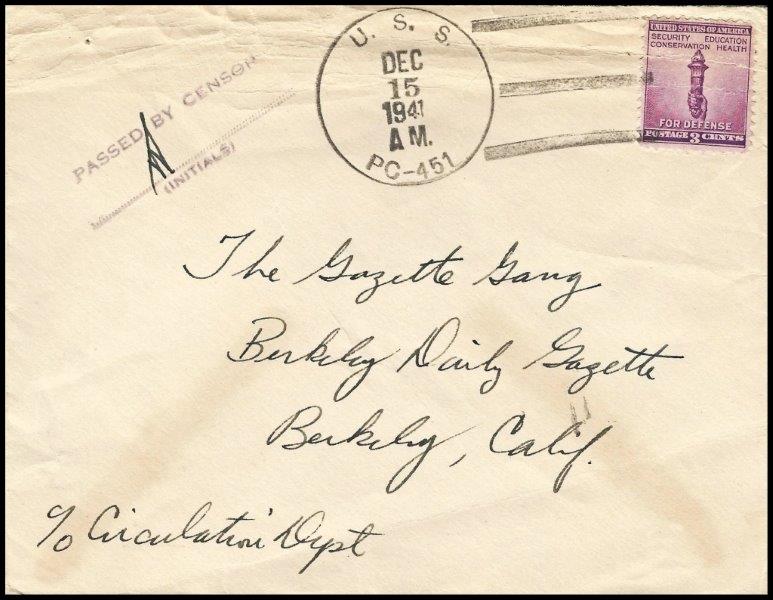 PASSED BY CENSOR
(INITIALS)
U. S. S.
DEC
15
1941
A M.
PC-451
UNITED STATES OF AMERICA
SECURITY EDUCATION
CONSERVATION HEALTH
FOR DEFENSE
POSTAGE 3 CENTS
The Gazette Gang
Berkeley Daily Gazette
Berkeley, Calif.
c/o Circulation Dept